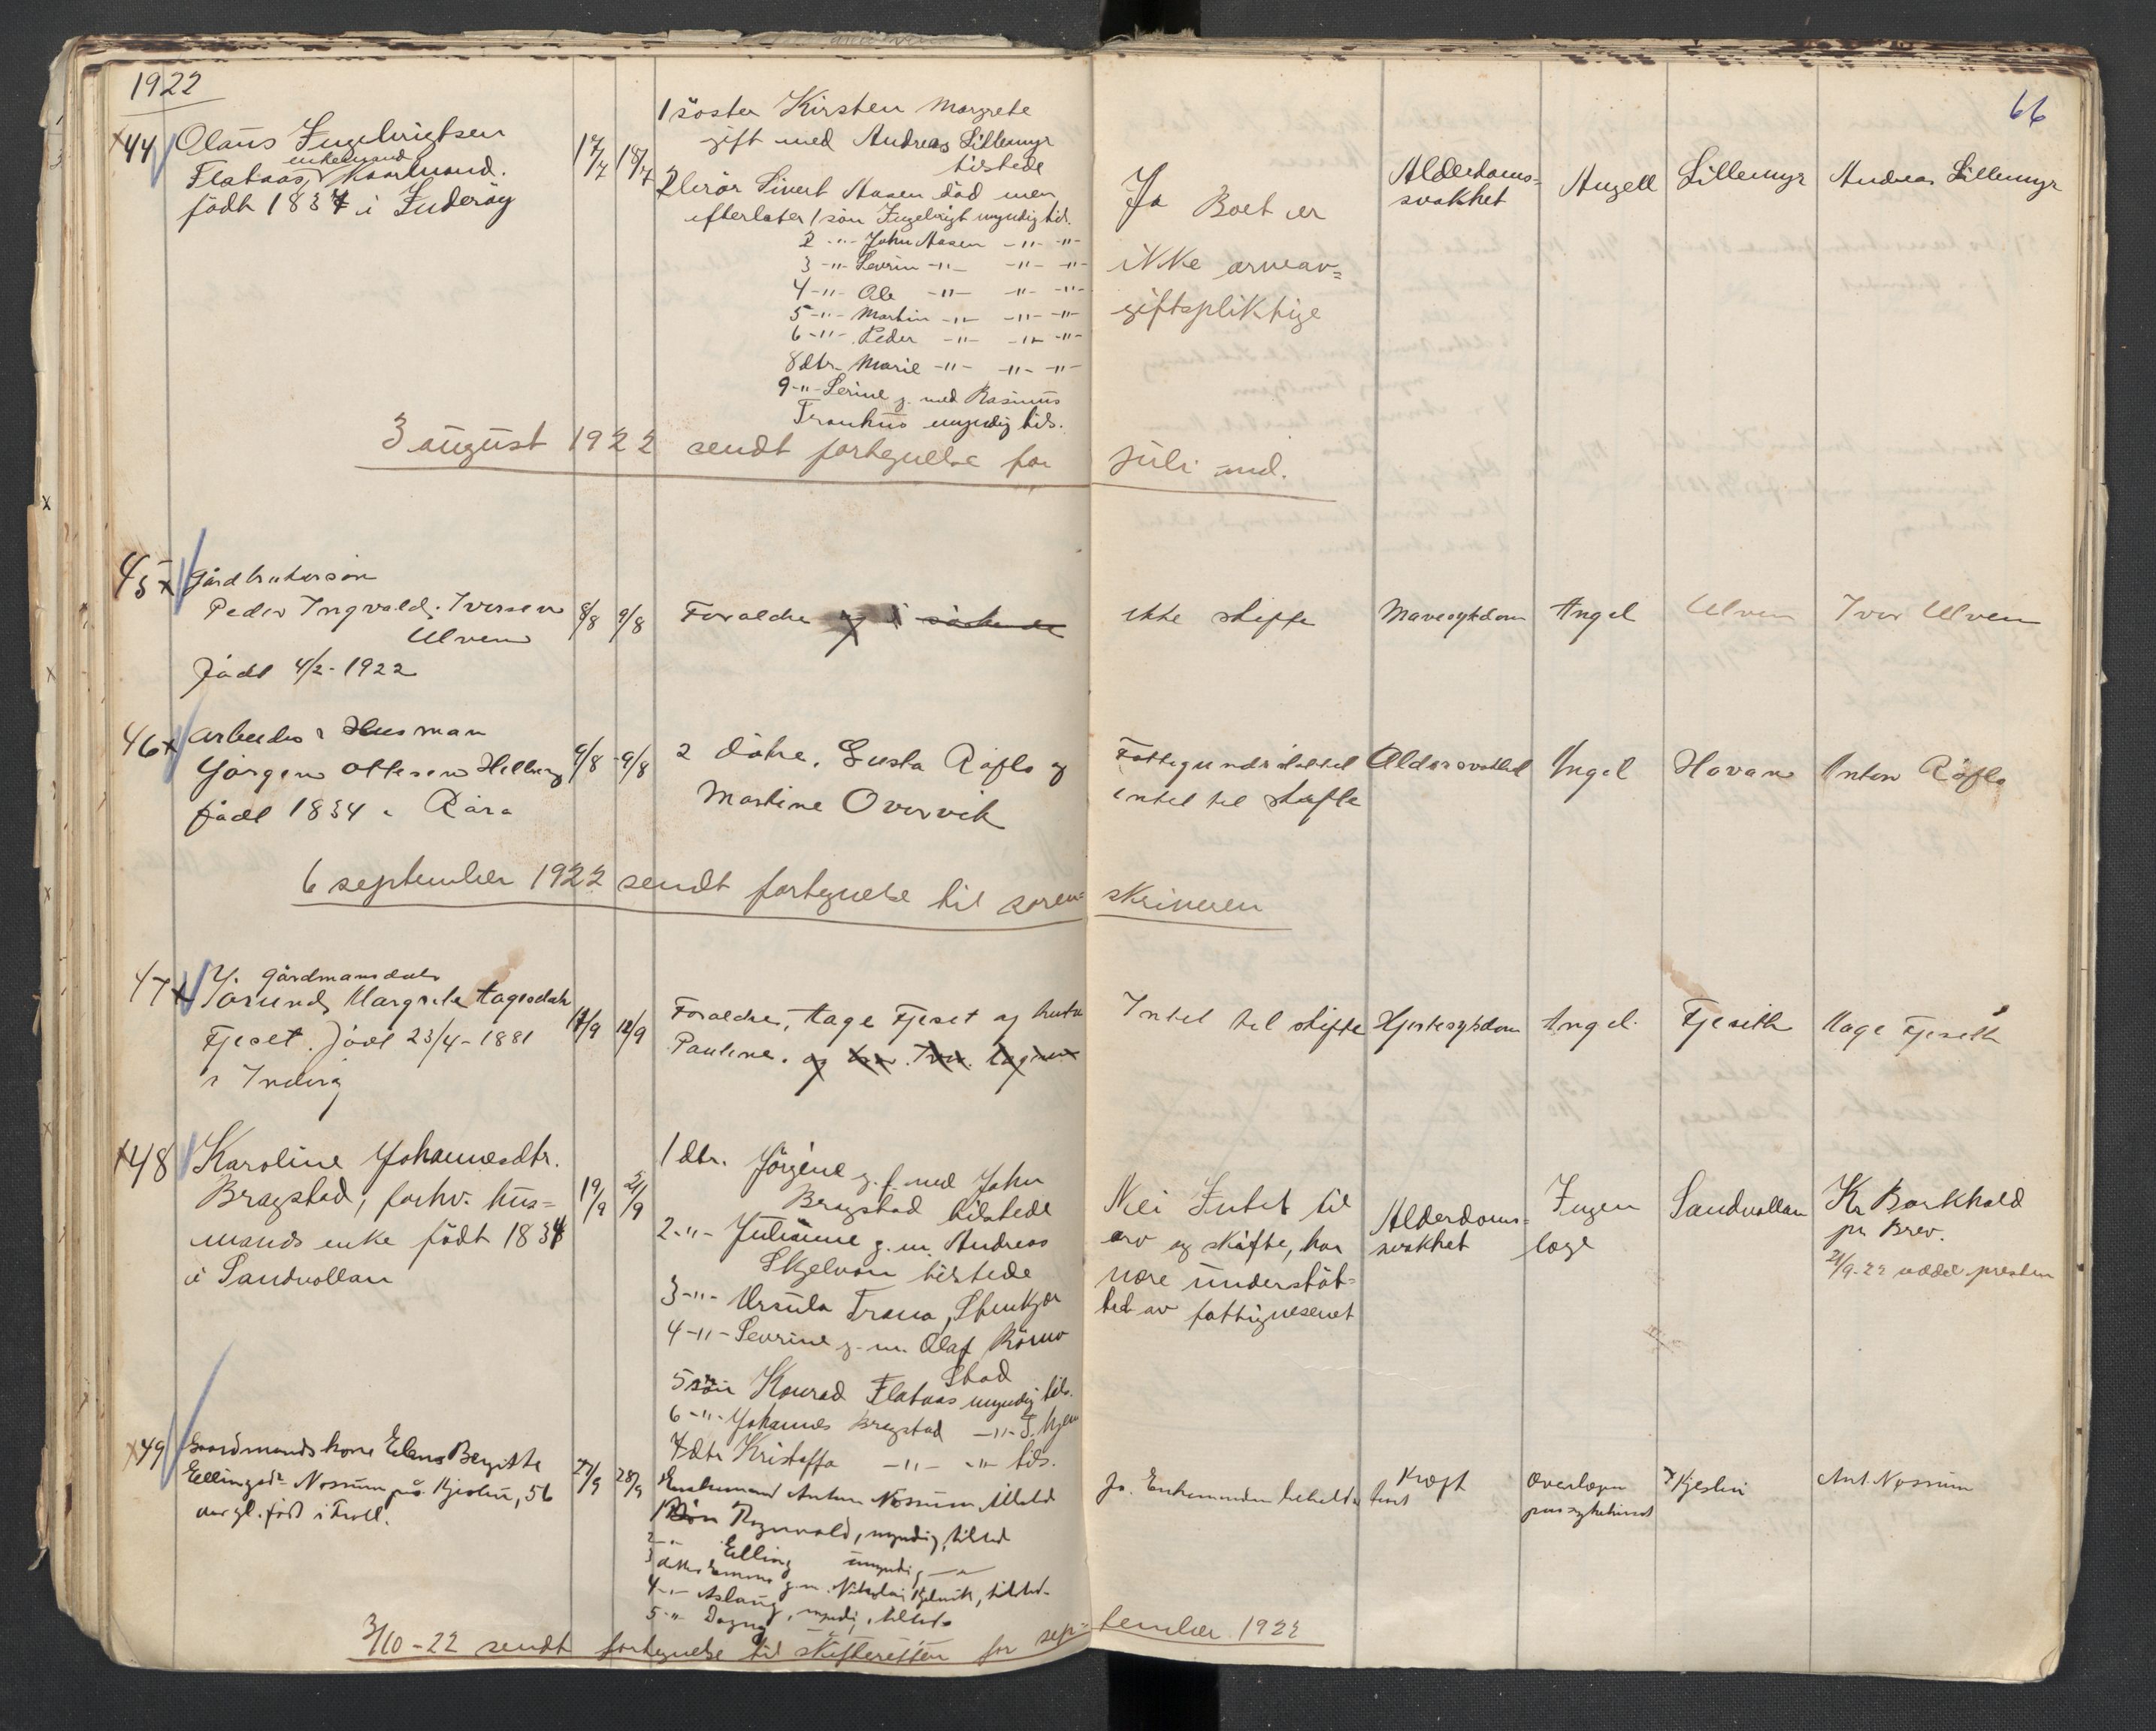 1922
66
44
Olaus Ingebrigtsen
enkemand
Flataas, Kaarmand.
född 1837 i Inderöy
17/7 18/7
1 söster Kirsten Margrete
gift med Andreas Lillemyr
tilstede
2 bror Sivert Aasen död men
efterlater 1 sön Ingebrigt myndig tils.
2 -"- John Aasen -"- -"-
3 -"- Severin -"- -"- -"-
4 -"- Ole -"- -"- -"-
5 -"- Martin -"- -"- -"-
6 -"- Peder -"- -"- -"-
8 dtr. Marie -"- -"- -"-
9 -"- Serine g. med Rasmus
Tranhus myndig tils.
Ja Boet er
ikke arveav=
giftspliktige
Alderdoms=
svakhet
Angell
Lillemyr
Andreas Lillemyr
3 august 1922 sendt fortegnelse for juli md.
45
Gårdbrukersön
Peder Ingvald Iversen
Ulven
född 4/2-1922
8/8 9/8
Foraldre og söskende
ikke skifte
Mavesykdom
Angel
Ulven
Iver Ulven
46
Arbeider & Husman
Jörgen Ottesen Helberg
född 1834 i Röra
9/8 9/8
2 dötre, Gusta Röflo og
Martine Overvik
Fattigunderstöttet
intet til skifte
Alderssvakhet
Angel
Hovan
Anton Röflo
6 september 1922 sendt fortegnelse til soren=skriveren
47
Gårdmansdatr
Jörund Margrete Aagesdatr
Fjeset. född 23/4-1881
i Inderöy
12/9
Foraldre, Aage Fjeset og hustru
Pauline. og
Intet til skifte
Hjertesykdom
Angel.
Fjeseth
Aage Fjeseth
48
Karoline Johannesdtr.
Bragstad, forhv. hus=
mands enke född 1834
i Sandvollan
19/9 21/9
1 dtr. Jörgine g. f. med John
Bragstad tilstede
2 -"- Julianne g. m. Andreas
Skjelvan tilstede
3 -"- Ursula Trana, Stenkjær
4 -"- Sevrine g. m. Olaf Römo
Stod
5 sön Konrad Flataas myndig tils.
6 -"- Johannes Bragstad -"- T.hjem
7 dtr Kristoffa -"- -"- tils.
Nei Intet til
arv og skifte, har
være understöt=
tet av fattigvesenet
Alderdoms=
svakhet
Ingen
læge
Sandvollan
Kr Barkhald
pr Brev.
21/9-22 ved presten
49
Gaardmandskone Elen Bergitte
Ellingsdr Nossum på Kjeslin, 56
aar gl. född i Frol.
27/9 28/9
Enkemand Anton Nossum tilstede
1 Sön Ragnvald, myndig, tilsted
2 -"- Elling umyndig -"-
3 datter Emma g. m. Nikolai, tilsted.
4 -"- Aslaug
5 -"- Dagny, myndig, tilsted
Ja. Enkemanden beholder boet
Kræft
Overlægen
paa sykehuset
Kjeslin
Ant. Nossum
3/10-22 sendt fortegnelse til skifteretten for sep=tember 1922